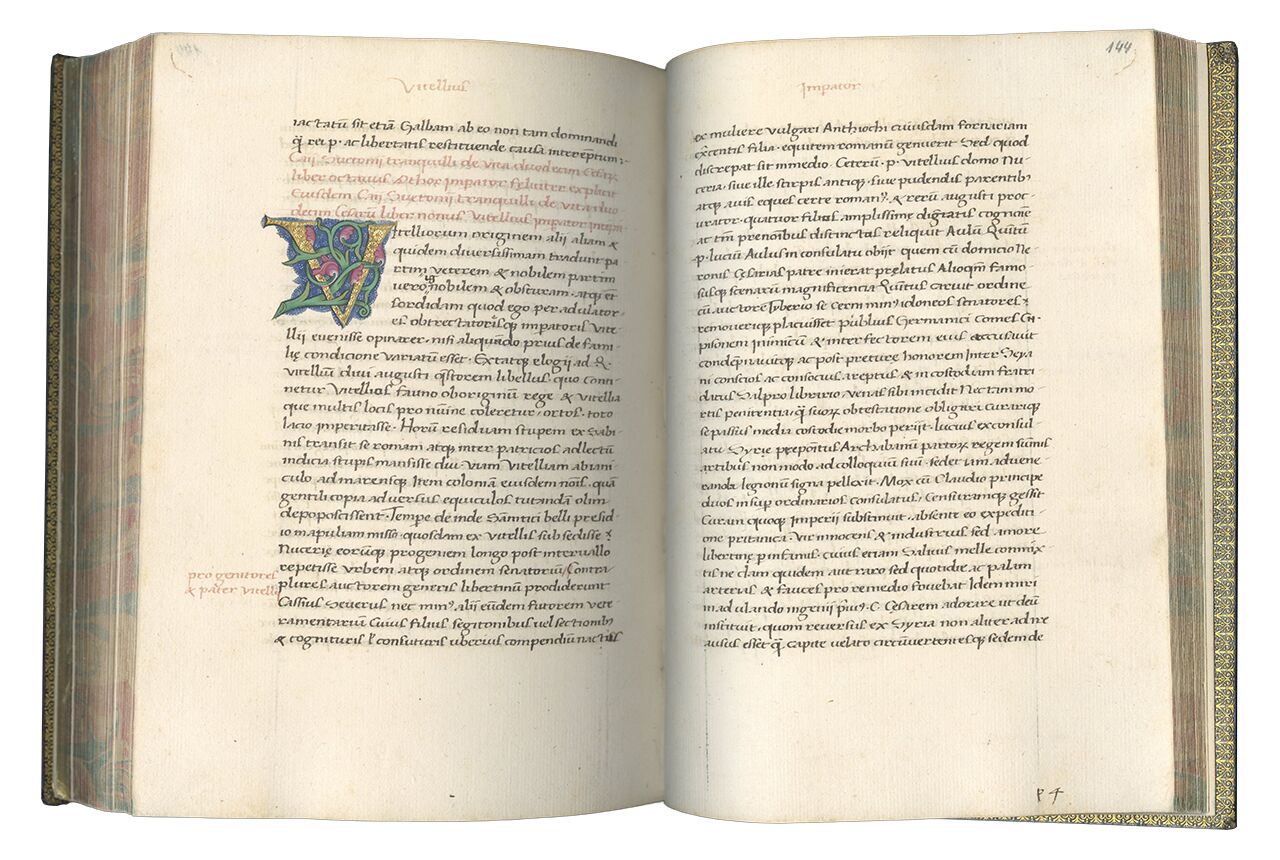 Vitellius
iactatū sit etiā Galbam ab eo non tam dominandi
q̄ rei p. ac libertatis restituende causa interēptum.
Caii Suetoni tranquilli de vita duodecim Cesarz
liber octavus Othor impator feliciter explicit
Eiusdem Caii Suetoni tranquilli de vita duo
decim Cesarū liber nonus Vitellius impator incipit
Vitelliorum originem alii aliam &
quidem diversissimam tradunt pa
rtim veterem & nobilem partim
vero nobilem & obscuram. atqȝ et
sordidam quod ego per adulator
es obtrectatorisqȝ impatoris Vite
llii evenisse opinarer. nisi aliquando prius de fami
lię condicione variatū esset. Extatqȝ elogii ad Q.
Vitelliū divi augusti q̄storem libellus, quo conti
netur Vitellios fauno oboriginū rege & Vitellia
que multis locis pro numine coleretur, ortos, toto
lacio imperitasse. Horū residuam stupem ex Sabi
nis transit se romam atqȝ inter patricios adlectū
indicia stupis mansisse diu. Viam Vitelliam ab iani
culo ad mareusqȝ. Item coloniā eiusdem noīs, quā
gentili copia adversus equiculos tutandā olim
depoposcissent. Tempe deinde Sāmtici belli presid
io in apuliam misso. quosdam ex Vitellis subsedisse
Nucerię eorūqȝ progeniem longo post intervallo
repetisse urbem atqȝ ordinem senatoriū. Contra
plures auctorem generis libertinū prodiderunt
Cassius Severus nec minꝰ alii eūdem sutorem vete
ramentarium Cuius filius segitonibus vel sectionibꝰ
& cognituris l' consuturis uberius compendiū nactus
progenitores
& pater vitelli
Impator
144
ex muliere vulgari Anthiochi cuiusdam fornariam
exercentis filia. equitem romanū genuerit. Sed quod
discrepat sit in medio. Ceterū. p. vitellius domo Nu
ceria. sive ille stirpis antiqȝ. sive pudendis parentibꝰ
atqȝ avis eques certe romanꝰ. & rerū augusti proc
urator. quatuor filios amplissime dignitatis cognoīe
ac tm̄ prenoibus distinctas reliquit Aulū. Quitū
p. luciū Aulus in consulatu obiit quem cū domicio Ne
ronis Cesaris patre inierat pręlatus Alioqm̄ famo
susqȝ scenarū magnificencia Quītus caruit ordine
cū auctore Tyberio secerni minꝰ idoneos senatores
removeriqȝ placuisset Publius Germanici Comes Gn
pisonem inimicū & interfectorem eius accusavit
condēpnavitqȝ ac post preture honorem inter Seya
ni conscios ac consocius areptus & in custodiam fratri
datus Salpro librario, venas sibi incidit Nec tam mo
rtis penitentia. q̄ suorȝ obtestatione obligari curariqȝ
se passus media costodie morbo periit. lucius ex consul
atu Syrie prepositus Archabanū partorȝ regem sūmis
artibus non modo ad colloquiū suū. sed etiam ad vene
randa legionū signa pellexit. Mox cū Claudio principe
duos insuꝑ ordinarios Consulatus, Censuramqȝ gessit
Curam quoqȝ Imperii substinuit. absente eo expediti
one pritanica Vir innocens & industrius sed amore
libertinę p infamis. cuius etiam salivis melle commix
tis ne clam quidem aut raro sed quotidie ac palam
arterias & fauces pro remedio fovebat Idem miri
in adulando ingenii priuꝰ. C. Cesarem adorare ut deū
instituit. quom reversus ex Syria non aliter adire
ausus esset q̄ capite velato circūvertentesqȝ se dein de
p 4